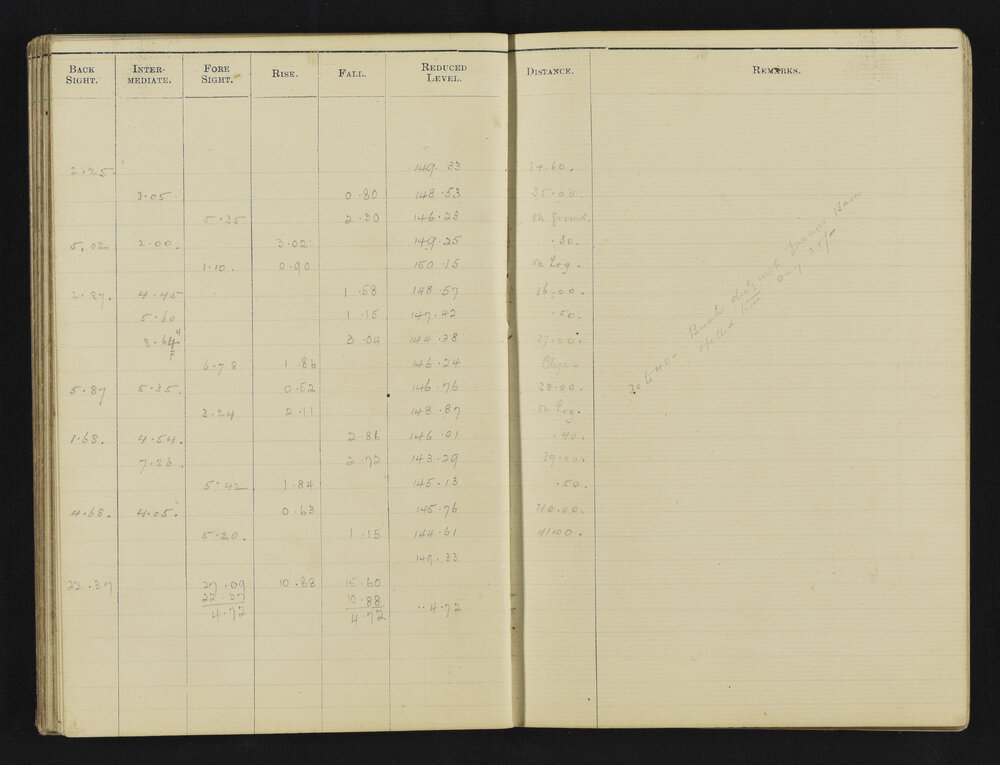 BACK SIGHT. INTER-MEDIATE. FORE SIGHT. RISE. FALL. REDUCED LEVEL. DISTANCE. REMARKS.
2.25. 149.33 34.60.
3.05 0.80 148.53 35.00.
5.35 2.30 146.23 on ground.
5.02 2.00. 3.02 149.25 .30.
1.10. 0.90 150.15 on Log.
2.87. 4.45 1.58 148.57 36.00.
5.60 1.15 147.42 .50.
8.64 3.04 144.38 37.00.
6.78 1.86 146.24
5.87 5.35. 0.52 146.76 38.00.
3.24 2.11 148.87 on Log.
1.68. 4.54. 2.86 146.01 .40.
7.26. 2.72 143.29 39.00.
5.42 1.84 145.13 .50.
4.68. 4.05. 0.63 145.76 40.00.
5.20. 1.15 144.61 41.00.
149.33
22.37 27.09 10.88 15.60
22.37 10.88
4.72 4.72 4.72
30 to 40. Bush